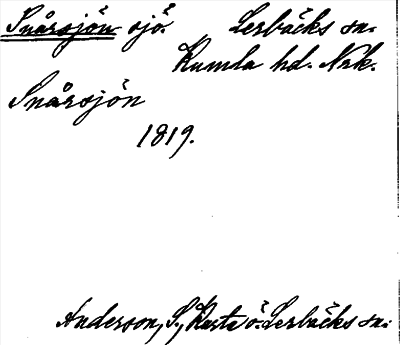 Snårsjön sjö. Lerbäcks sn.
Kumla hd. Nrk.
Snårsjön
1819.
Anderson, S., Karta ö. Lerbäcks sn.